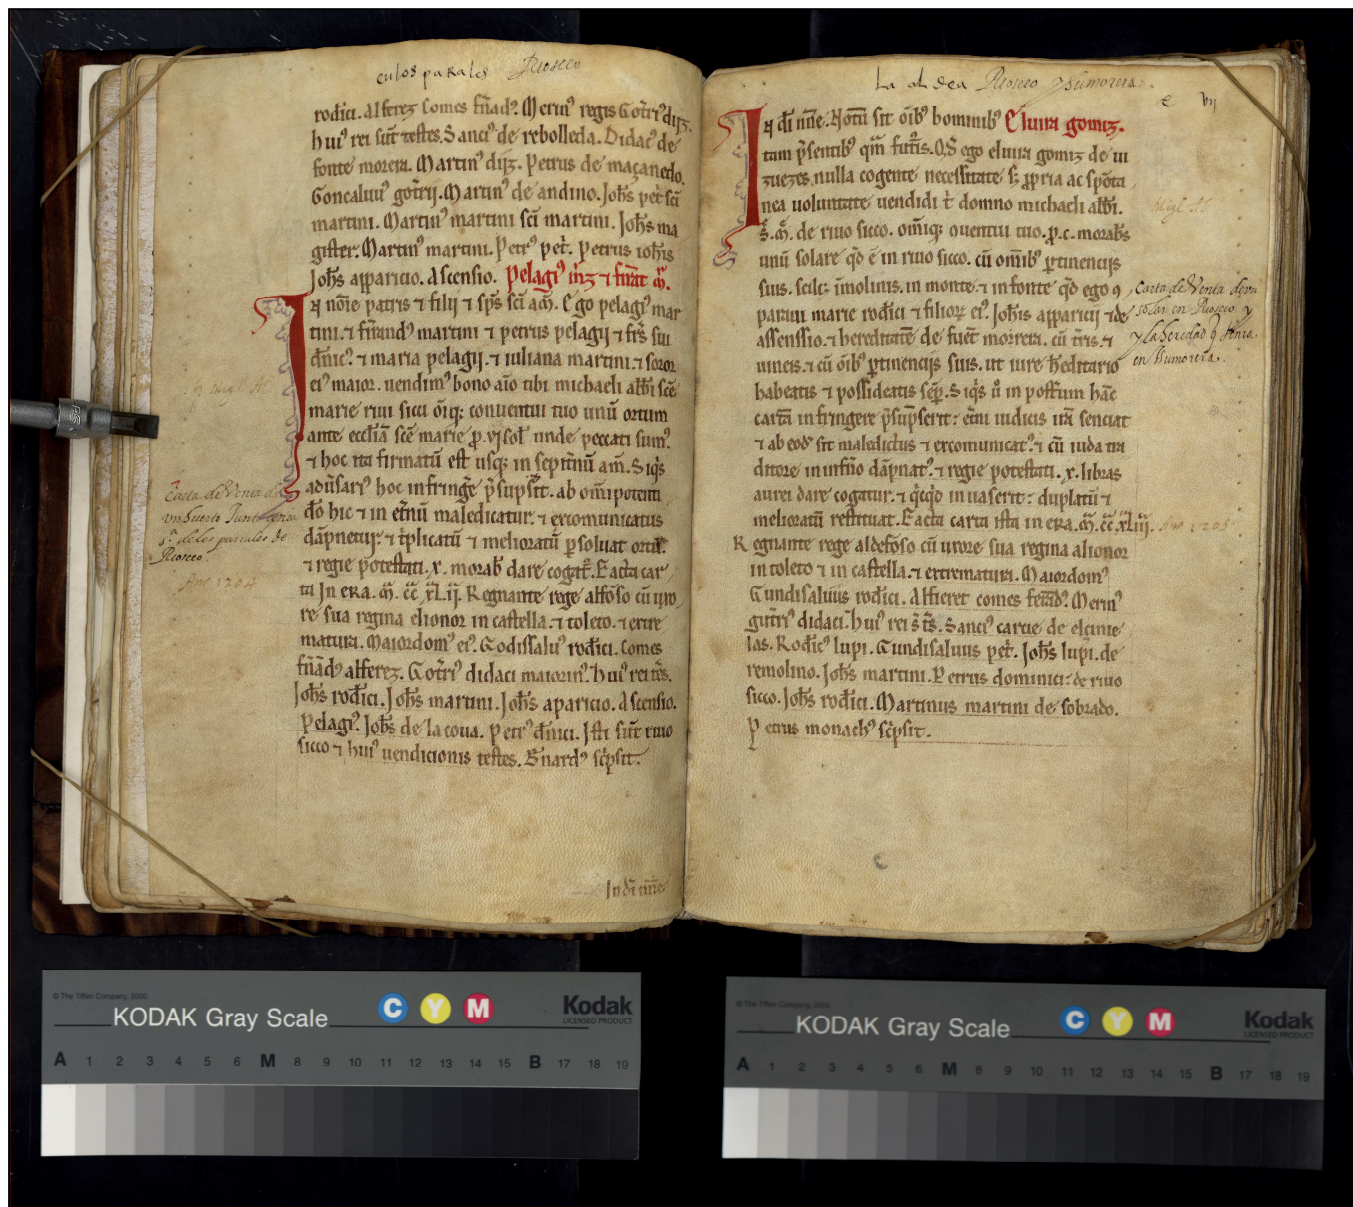 en los parrales Rioseco
rodici. Alferez Comes fñad9. Merin9 regis Gotr̃i9 diȷz.
hui9 rei sũt testes. Sanci9 de rebolleda. Didac9 de
fonte morera. Martin9 diȷz. Petrus de maçanedo.
Goncaluu9 got̃rij. Martin9 de andino. Joh̃s pet̃ sc̃i
martini. Martin9 martini sc̃i martini. Joh̃s ma
gister. Martin9 martini. Petr9 pet̃. Petrus ioh̃is
Joh̃s apparicio. Ascensio. Pelagi9 m̃z ⁊ fñat m̃.
In nõie patris ⁊ filij ⁊ sp̃s sc̃i am̃. Ego pelagi9 mar
tini. ⁊ fr̃nand9 martini ⁊ petrus pelagij ⁊ fr̃s sui
dñic9. ⁊ maria pelagij. ⁊ iuliana martini. ⁊ soror
ei9 maior. uendim9 bono aĩo tibi michaeli abb̃i sc̃e
marie riui sicci õiq; conuentui tuo unũ ortum
ante eccl̃iã sc̃e marie p̲. vj sol̃ unde peccati sum9.
⁊ hoc ita firmatũ est usq; in sepit̃nũ am̃. Siq̃s
adũsari9 hoc infringe p̃supsit̃. ab om̃ipotenti
dõ hic ⁊ in et̃nũ maledicatur. ⁊ excomunicatus
dãpnetur. ⁊ t̃plicatũ ⁊ melioratũ p̲soluat ortũ.
⁊ regie potestati. x. morab̃ dare cogat̃. Facta car
ta In era. m̃. c̃c̃ x̃Lij̃. Regnante rege alfõso cũ uxo
re sua regina elionor in castella. ⁊ toleto. ⁊ extre
matura. Maiordom9 ei9. Godissalu9 rodici. Comes
fñãd9 alferez. Got̃ri9 didaci maiorin9. hui9 rei tẽs.
Joh̃s rod̃ici. Joh̃s martini. Joh̃s aparicio. Ascensio.
Pelagi9. Joh̃s de la coua. Petr9 dñici. Isti sũt riuo
sicco ⁊ hui9 uendicionis testes. B̃nard9 sc̃psit.
Carta de Venta de
vn huerto Junto
Sª. de los parrales de
Rioseco.
Año 1204
In dĩ nñe
La aldea Rioseco y humorera.
vij
In dĩ nñe. Notũ sit õib9 hominib9 Eluira gomiz.
tam p̃sentib9 qm̃ futĩs. Q̃S ego eluira gomiz de ui
zuezes nulla cogente necessitate s; p̲pria ac spõta
nea uoluntate uendidi t̃ domno michaeli abb̃i.
S̃. M̃. de riuo sicco. om̃iq; quentui tuo. p̲. c. morab̃s
unũ solare qd̃ ẽ in riuo sicco. cũ om̃ib9 p̲tinencijs
suis. scilc; ĩmolinis. in monte. ⁊ in fonte qd̃ ego 9
paraui marie rodici ⁊ filioꝝ ei9. Joh̃is apparicij ⁊ de
assensio. ⁊ hereditatẽ de fuẽt morera. cũ t̃ris. ⁊
uineis. ⁊ cũ õib9 p̲tinencijs suis. ut iure h̃editario
habeatis ⁊ possideatis sep̃. Siq̃s ũ in postum hãc
cartã infringere p̃supserit: et̃ni iudicis irã senciat
⁊ ab eod9 sit maledictus ⁊ excomunicat9. ⁊ cũ iuda tra
ditore in infñо dãpnat9. ⁊ regie potestati. x. libras
aurei dare cogatur. ⁊ q̃cq̃d inuaserit: duplatũ ⁊
melioratũ restituat. Facta carta ista in era. m̃. c̃c̃. x̃liij̃. Año 1205
Regnante rege aldefõso cũ uxore sua regina alionor
in toleto ⁊ in castella. ⁊ extrematura. Maiordom9
Gundisaluus rodici. Alfieret comes fernãd9. Merin9
gutr̃i9 didaci. hui9 rei s̃ t̃s. Sanci9 carcie de
las. Rodic9 lupi. Gundisaluus pet̃. Joh̃s lupi. de
remolino. Joh̃s martini. Petrus dominici: de riuo
sicco. Joh̃s rodici. Martinus martini de sobrado.
Petrus monach9 sc̃psit.
Carta de Venta de vn
solar en Rioseco y
y la heredad q tenia
en humorera.
© The Tiffen Company, 2000
KODAK Gray Scale
C Y M
Kodak
LICENSED PRODUCT
A 1 2 3 4 5 6 M 8 9 10 11 12 13 14 15 B 17 18 19
© The Tiffen Company, 2000
KODAK Gray Scale
C Y M
Kodak
LICENSED PRODUCT
A 1 2 3 4 5 6 M 8 9 10 11 12 13 14 15 B 17 18 19